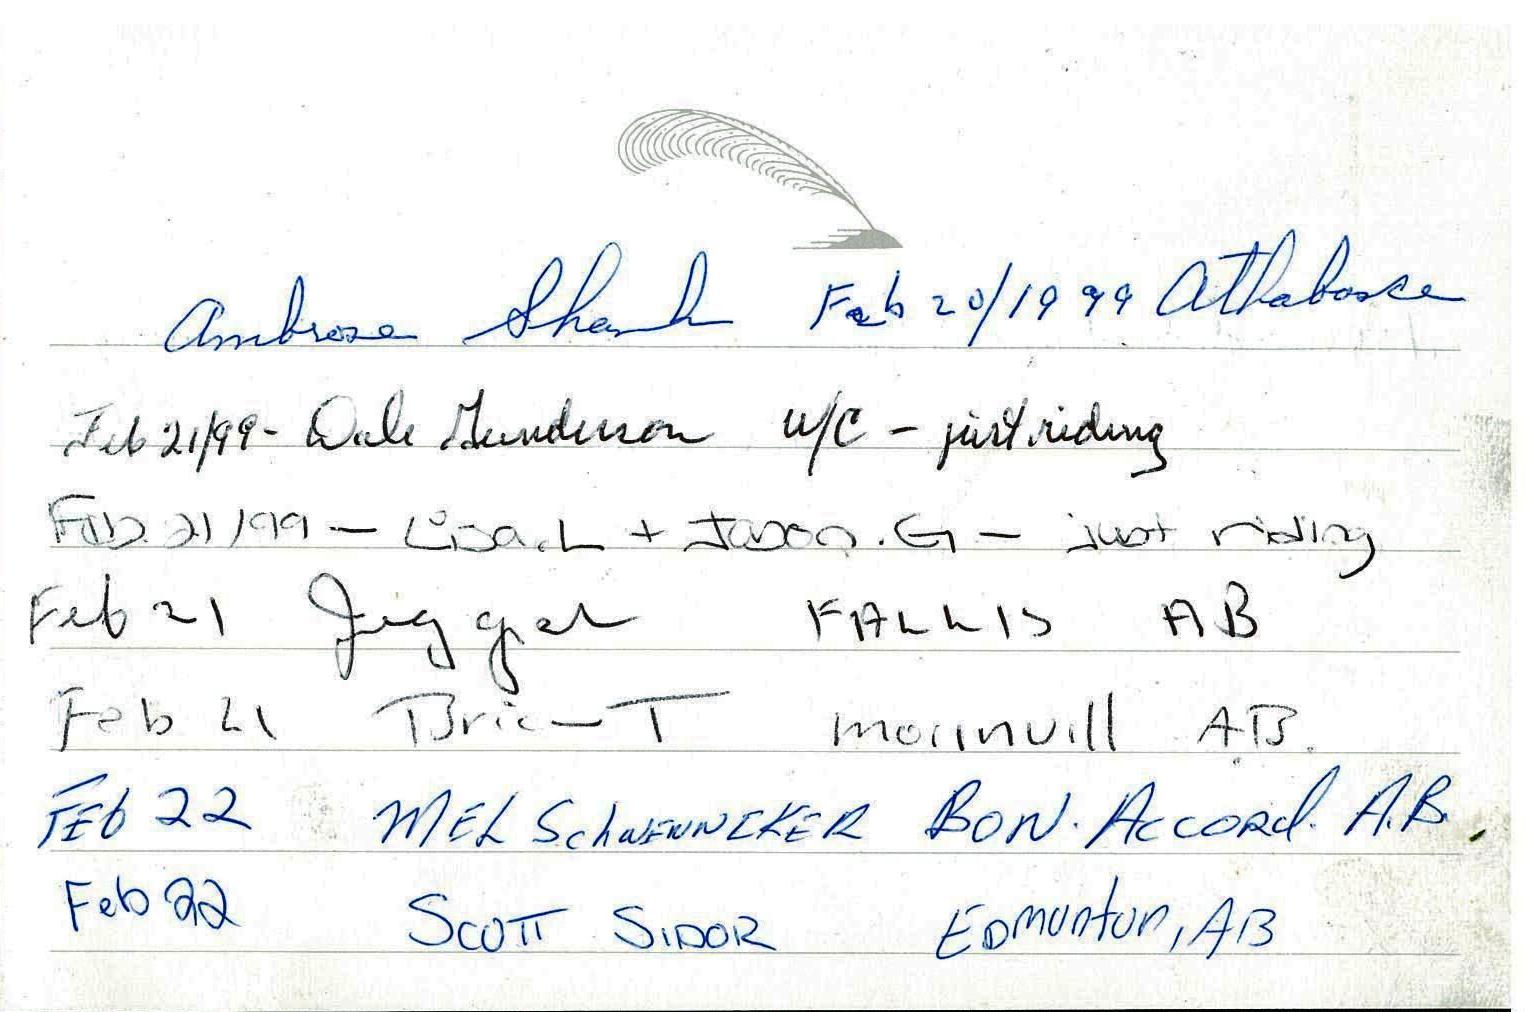 Ambrose Shank Feb 20/1999 Athabasca
Feb 21/99 - Dale Gunderson W/C - just riding
Feb 21/99 - Lisa.L + Jason.G - just riding
Feb 21 FALLIS AB
Feb 21 Bric-T morinvill AB.
FEb 22 MEL SchWENNEKER BON. ACCORd. A.B.
Feb 22 SCOTT SIDOR EDmuntun, AB